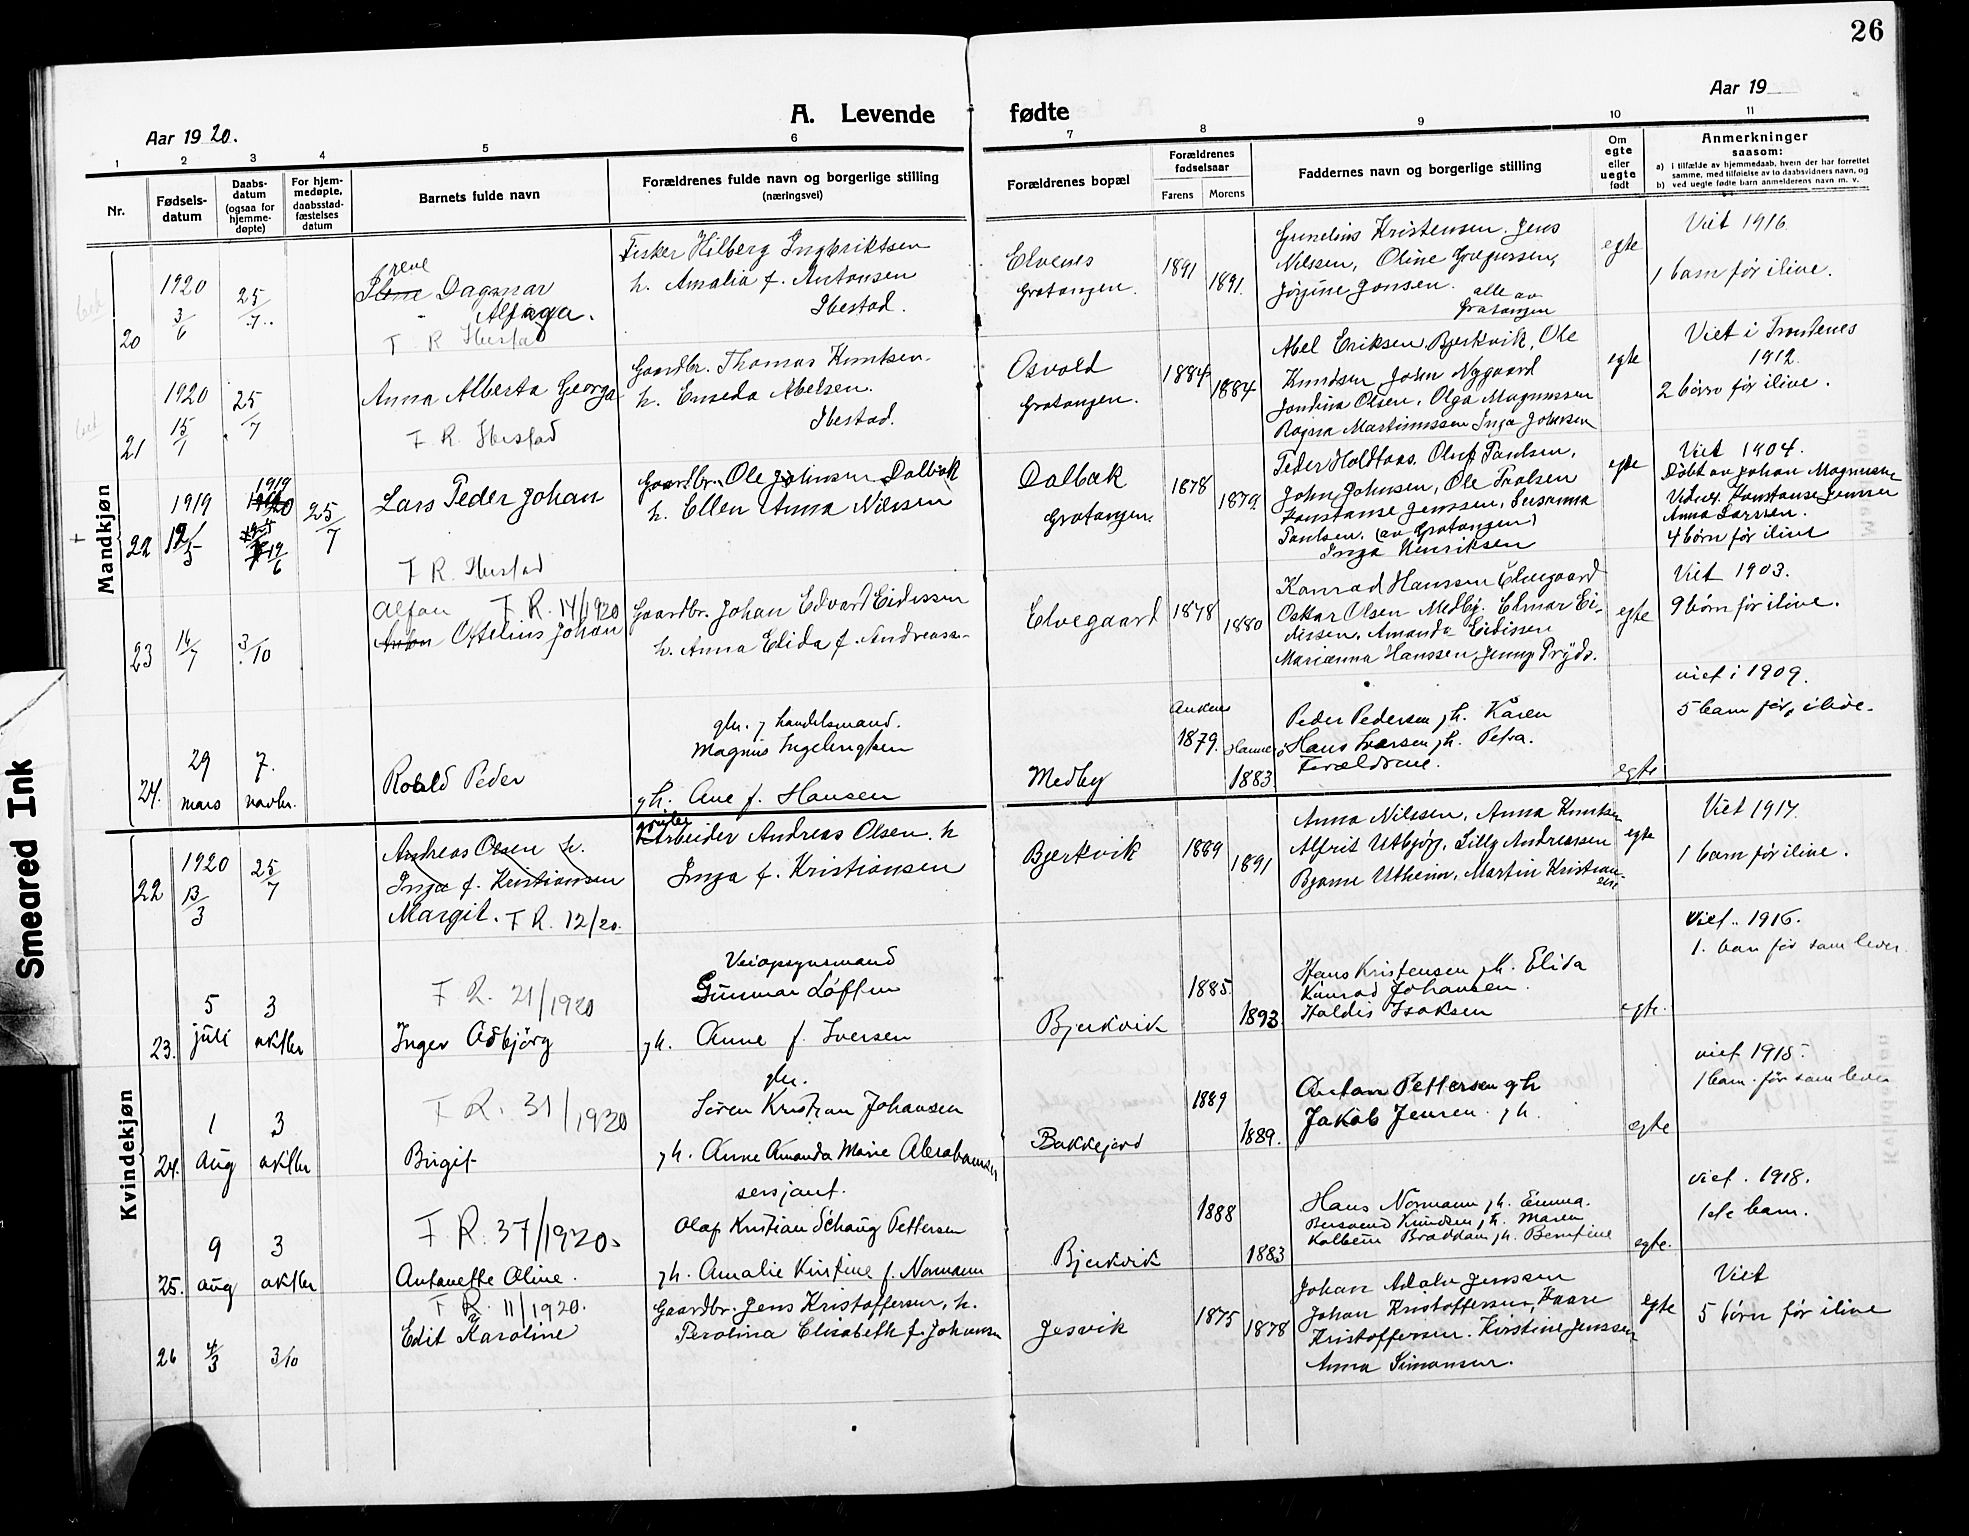 26
Aar 1920.
A. Levende
fødte
Aar 19
1 2 3 4 5 6 7 8 9 10 11
Nr.
Fødsels-
datum
Daabs-
datum
(ogsaa for
hjemme-
døpte)
For hjem-
medøpte,
daabsstad-
fæstelses
datum
Barnets fulde navn
Forældrenes fulde navn og borgerlige stilling
(næringsvei)
Forældrenes bopæl
Forældrenes
fødselsaar
Farens Morens
Faddernes navn og borgerlige stilling
Om
egte
eller
uegte
født
Anmerkninger
saasom:
a) i tilfælde av hjemmedaab, hvem der har forrettet
samme, med tilføielse av to daabsvidners navn, og
b) ved uegte fødte barn anmelderens navn m. v.
Mandkjøn
20
1920
3/6
25/7
Dagmar
T R Ibestad
Fisker Hilberg Ingbriktsen
h. Amalia f. Antonsen
Ibestad.
Elvenes
Gratangen.
1891
1891.
Kristensen. Jens
Nilssen, Oline
Jørgine Jonsen. alle av
Gratangen
egte
Viet 1916.
1 barn før ilive.
21
1920
15/7
25/7
Anna Alberta Georga
T R. Ibestad
Gaardbr. Thomas Knutsen.
h. Enseda Abelsen.
Ibestad.
Osvold
Gratangen.
1884
1884
Abel Eriksen Bjerkvik, Ole
Knudsen John Nygaard
Jondina Olsen, Olga Magnussen
Ragna Martinussen Inga Johansen
egte
Viet i Trondenes
1912.
2 børn før ilive.
22
1919
12/5
1919
25/7
Lars Peder Johan
T R. Ibestad
Gaardbr. Ole Johnsen Dalbak
h. Ellen Anna Nilssen
Dalbak
Gratangen.
1878
1879.
Peder Holdtaas. Oluf Paulsen,
John Johnsen, Ole Paulsen
Konstanse Jenssen, Susanna
Paulsen. (av Gratangen)
Inga Henriksen
egte
Viet 1904.
Døbt av Johan Magnussen
Vidner. Konstanse Jenssen
Anna Larssen.
4 børn før ilive
23
14/7
3/10
Alfon T. R. 14/1920
Anton Ottelius Johan
Gaardbr. Johan Edvard Eidissen
h. Anna Elida f. Andreass-
Elvegaard
1878
1880
Konrad Hanssen Elvegaard
Oskar Olsen Medby. Elmar Ei-
dissen, Amanda Eidissen
Marianna Hanssen, Jenny Pryds.
egte
Viet 1903.
9 børn før ilive.
24.
29
mars
7.
novbr.
Peder
gbr. & handelsmand.
Magnus Ingebrigtsen
gh. Ane f. Hansen
Medby
1879.
1883
Peder Pedersen gh. Karen
Hans Larsen gh. Petra.
Forældrene.
egte
viet i 1909.
5 barn før ilive.
Kvindekjøn
22
1920
13/3
25/7
Andreas Olsen h.
Inga f. Kristiansen
Margit. T R. 12/20.
Arbeider Andreas Olsen. h
Inga f. Kristiansen
Bjerkvik
1889
1891
Anna Nilssen, Anna Knutsen
Alfrit Utbjørg, Lilly Andreassen
Bjarne Utheim, Martin Kristian-
sen
egte
Viet 1917.
1 barn før ilive.
23.
5
juli
3
oktbr
T R. 21/1920
Inger Asbjørg
Veiopsynsmand
Gunnar Løften
gh. Anne f. Iversen
Bjerkvik
1885.
1893.
Hans Kristensen gh. Elida
Konrad Johansen.
Haldis Isaksen
egte.
viet. 1916.
1. barn før som lever.
24.
1
aug
3
oktbr
T R. 31/1920
Birgit
gbr.
Søren Kristian Johansen
gh. Anne Amanda Marie Abrahamsen
Bakkejord
1889
1889.
Anton Pettersen gh
Jakob Jensen. gh.
egte
viet 1915.
1 barn. før som lever
25.
9
aug
3
oktbr
T R. 37/1920.
Antonette Oline.
sersjant.
Olaf Kristian Schaug Pettersen
gh. Amalie Kirstine f. Normann
Bjerkvik
1888
1883
Hans Normann gh. Emma.
Knudsen gh. Maren
Kolbein gh. Berntine
egte.
viet. 1918.
1ste barn.
26
4/3
3/10
T R 11/1920.
Edit Karoline
Gaardbr. Jens Kristoffersen, h.
Perolina Elisabeth f. Johansen
Jesvik
1875
1878
Johan Adolv Jenssen
Johan Kristoffersen, Kaare
Kristoffersen. Kirstine Jenssen
Anna Simonsen.
egte
Viet
5 børn før ilive
Smeared Ink